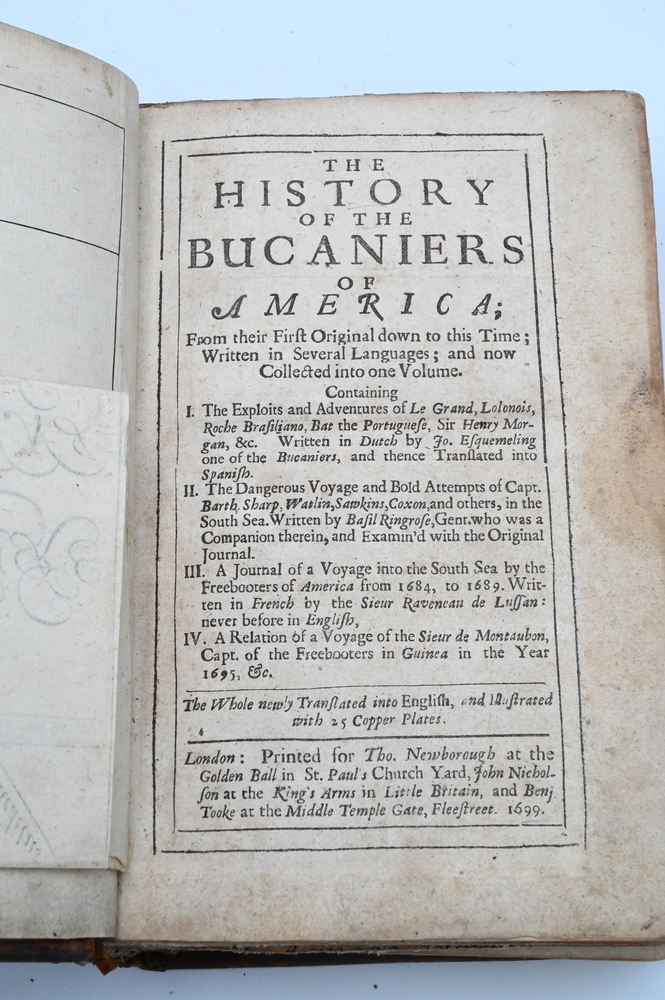 THE
HISTORY
OF THE
BUCANIERS
OF
AMERICA;
From their Firſt Original down to this Time;
Written in Several Languages; and now
Collected into one Volume.
Containing
I. The Exploits and Adventures of Le Grand, Lolonois,
Roche Braſiliano, Bat the Portugueſe, Sir Henry Mor-
gan, &c. Written in Dutch by Jo. Eſquemeling
one of the Bucaniers, and thence Tranſlated into
Spaniſh.
II. The Dangerous Voyage and Bold Attempts of Capt.
Barth. Sharp, Watlin, Sawkins, Coxon, and others, in the
South Sea. Written by Baſil Ringroſe, Gent. who was a
Companion therein, and Examin'd with the Original
Journal.
III. A Journal of a Voyage into the South Sea by the
Freebooters of America from 1684, to 1689. Writ-
ten in French by the Sieur Raveneau de Luſſan:
never before in Engliſh,
IV. A Relation of a Voyage of the Sieur de Montauban,
Capt. of the Freebooters in Guinea in the Year
1695, &c.
The Whole newly Tranſlated into Engliſh, and Illuſtrated
with 25 Copper Plates.
London: Printed for Tho. Newborough at the
Golden Ball in St. Paul's Church Yard, John Nichol-
ſon at the King's Arms in Little Britain, and Benj
Tooke at the Middle Temple Gate, Fleeſtreet. 1699.